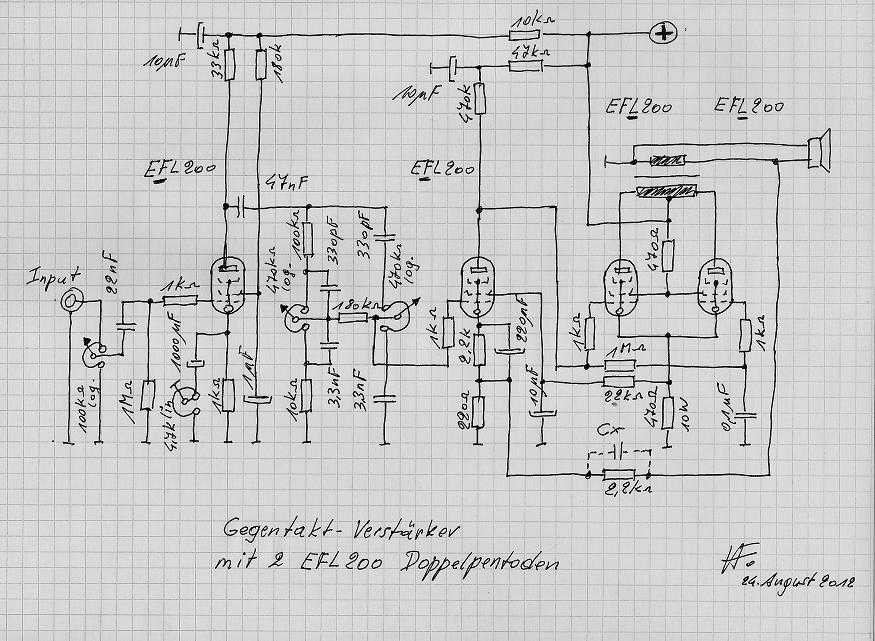 10kΩ
47kΩ
10µF
33kΩ
180k
10µF
470k
EFL200
EFL200
EFL200
EFL200
47nF
Input
22nF
1kΩ
100kΩ
330pF
330pF
470kΩ
log.
470kΩ
log.
470Ω
1000µF
180kΩ
1kΩ
2,2k
220µF
1kΩ
1kΩ
100kΩ
log.
1MΩ
4,7k lin
1kΩ
1µF
10kΩ
3,3nF
3,3nF
220Ω
10µF
1MΩ
22kΩ
470Ω
10W
0,1µF
Cx
2,2kΩ
Gegentakt-Verstärker
mit 2 EFL200 Doppelpentoden
24. August 2012